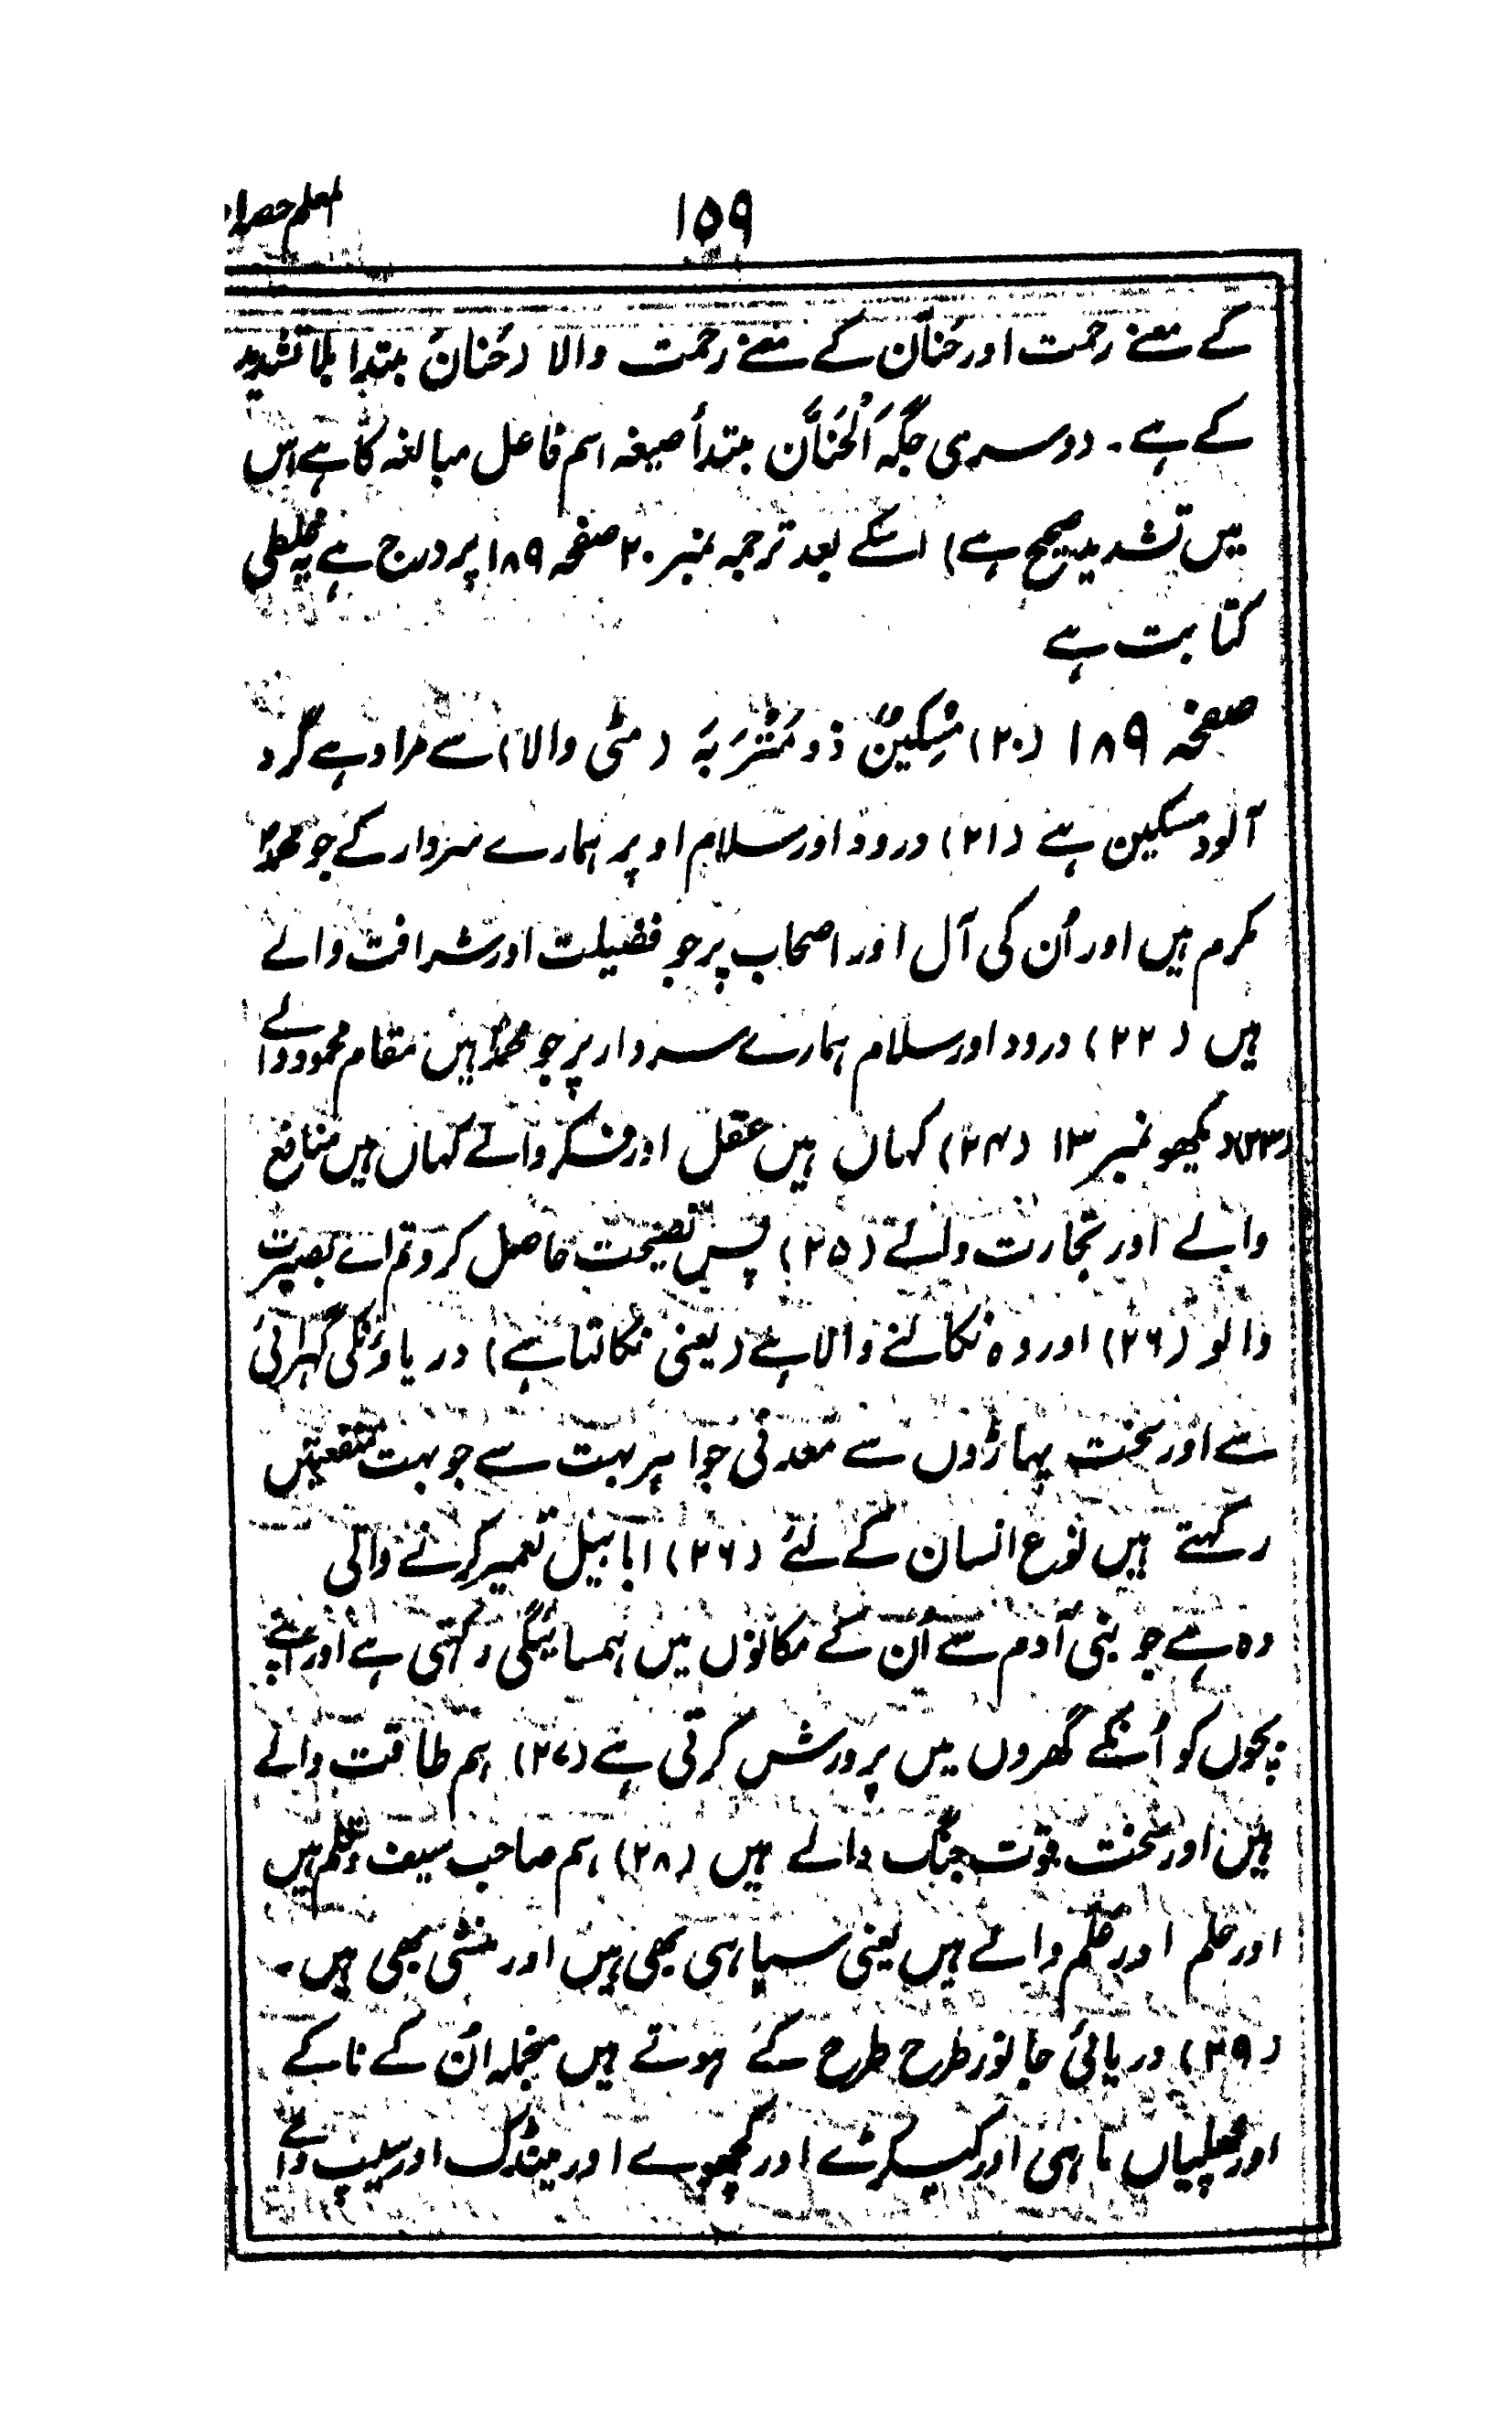 ۱۵۹
معلم حصہ
کے معنے رحمت اور حَنّان کے معنے رحمت والا (حَنَانٌ مبتدا بلا تشدید
کے ہے۔ دوسری جگہ اَلْحَنَّان مبتدأ صیغہ اسم فاعل مبالغہ کا ہے اس
میں تشدید صحیح ہے) اسکے بعد ترجمہ نمبر ۲۰ صفحہ ۱۸۹ پر درج ہے یہ غلطی
کتابت ہے
صفحہ ۱۸۹ (۲۰) مِسْکِیْنٌ ذو مَتْرَبَہ (مٹی والا) سے مراد ہے گرد
آلود مسکین ہے (۲۱) درود اور سلام اوپر ہمارے سردار کے جو محمدؐ
مکرم ہیں اور اُن کی آل اور اصحاب پر جو فضیلت اور شرافت والے
ہیں (۲۲) درود اور سلام ہمارے سردار پر جو محمدؐ ہیں مقام محمود والے
(۲۳) دیکھو نمبر ۱۳ (۲۴) کہاں ہیں عقل اور فکر والے کہاں ہیں منافع
والے اور تجارت والے (۲۵) پس نصیحت حاصل کرو تم اے بصیرت
والو (۲۶) اور وہ نکالنے والا ہے (یعنی نکالتا ہے) دریاؤنکی گہرائی
سے اور سخت پہاڑوں سے معدنی جواہر بہت سے جو بہت منفعتیں
رکہتے ہیں نوع انسان کے لئے (۲۶) ابابیل تعمیر کرنے والی
وہ ہے جو بنی آدم سے اُن کے مکانوں میں ہمسائیگی رکہتی ہے اور اپنے
بچوں کو اُنکے گھروں میں پرورش کرتی ہے (۲۷) ہم طاقت والے
ہیں اور سخت قوت جنگ والے ہیں (۲۸) ہم صاحب سیف و قلم ہیں
اور علم اور حکم والے ہیں یعنی سپاہی بھی ہیں اور منشی بھی ہیں۔
(۲۹) دریائی جانور طرح طرح کے ہوتے ہیں منجملہ اُن کے ناکے
اور مچھلیاں ماہی اور کیکڑے اور کچھوے اور مینڈک اور سیپ والے